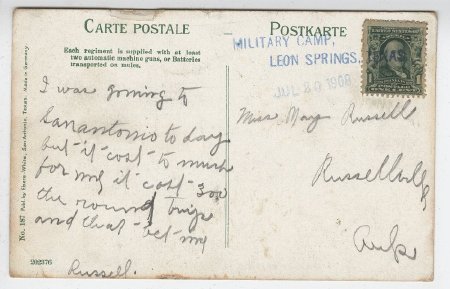 CARTE POSTALE
POSTKARTE
Each regiment is supplied with at least
two automatic machine guns, or Batteries
transported on mules.
MILITARY CAMP,
LEON SPRINGS, TEXAS.
JUL 20 1908
I was gowing to
Sanantonio to day
but it cost to much
for my it cost 300
the round trip
and that bet my
Russell.
Miss May Russell
Russellville
Ark
No. 187 Pub. by Nic Tengg, San Antonio, Texas. Made in Germany.
202376